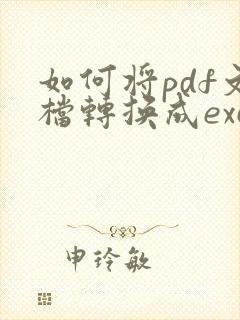 如何將pdf文
檔轉換成exc
申玲敏